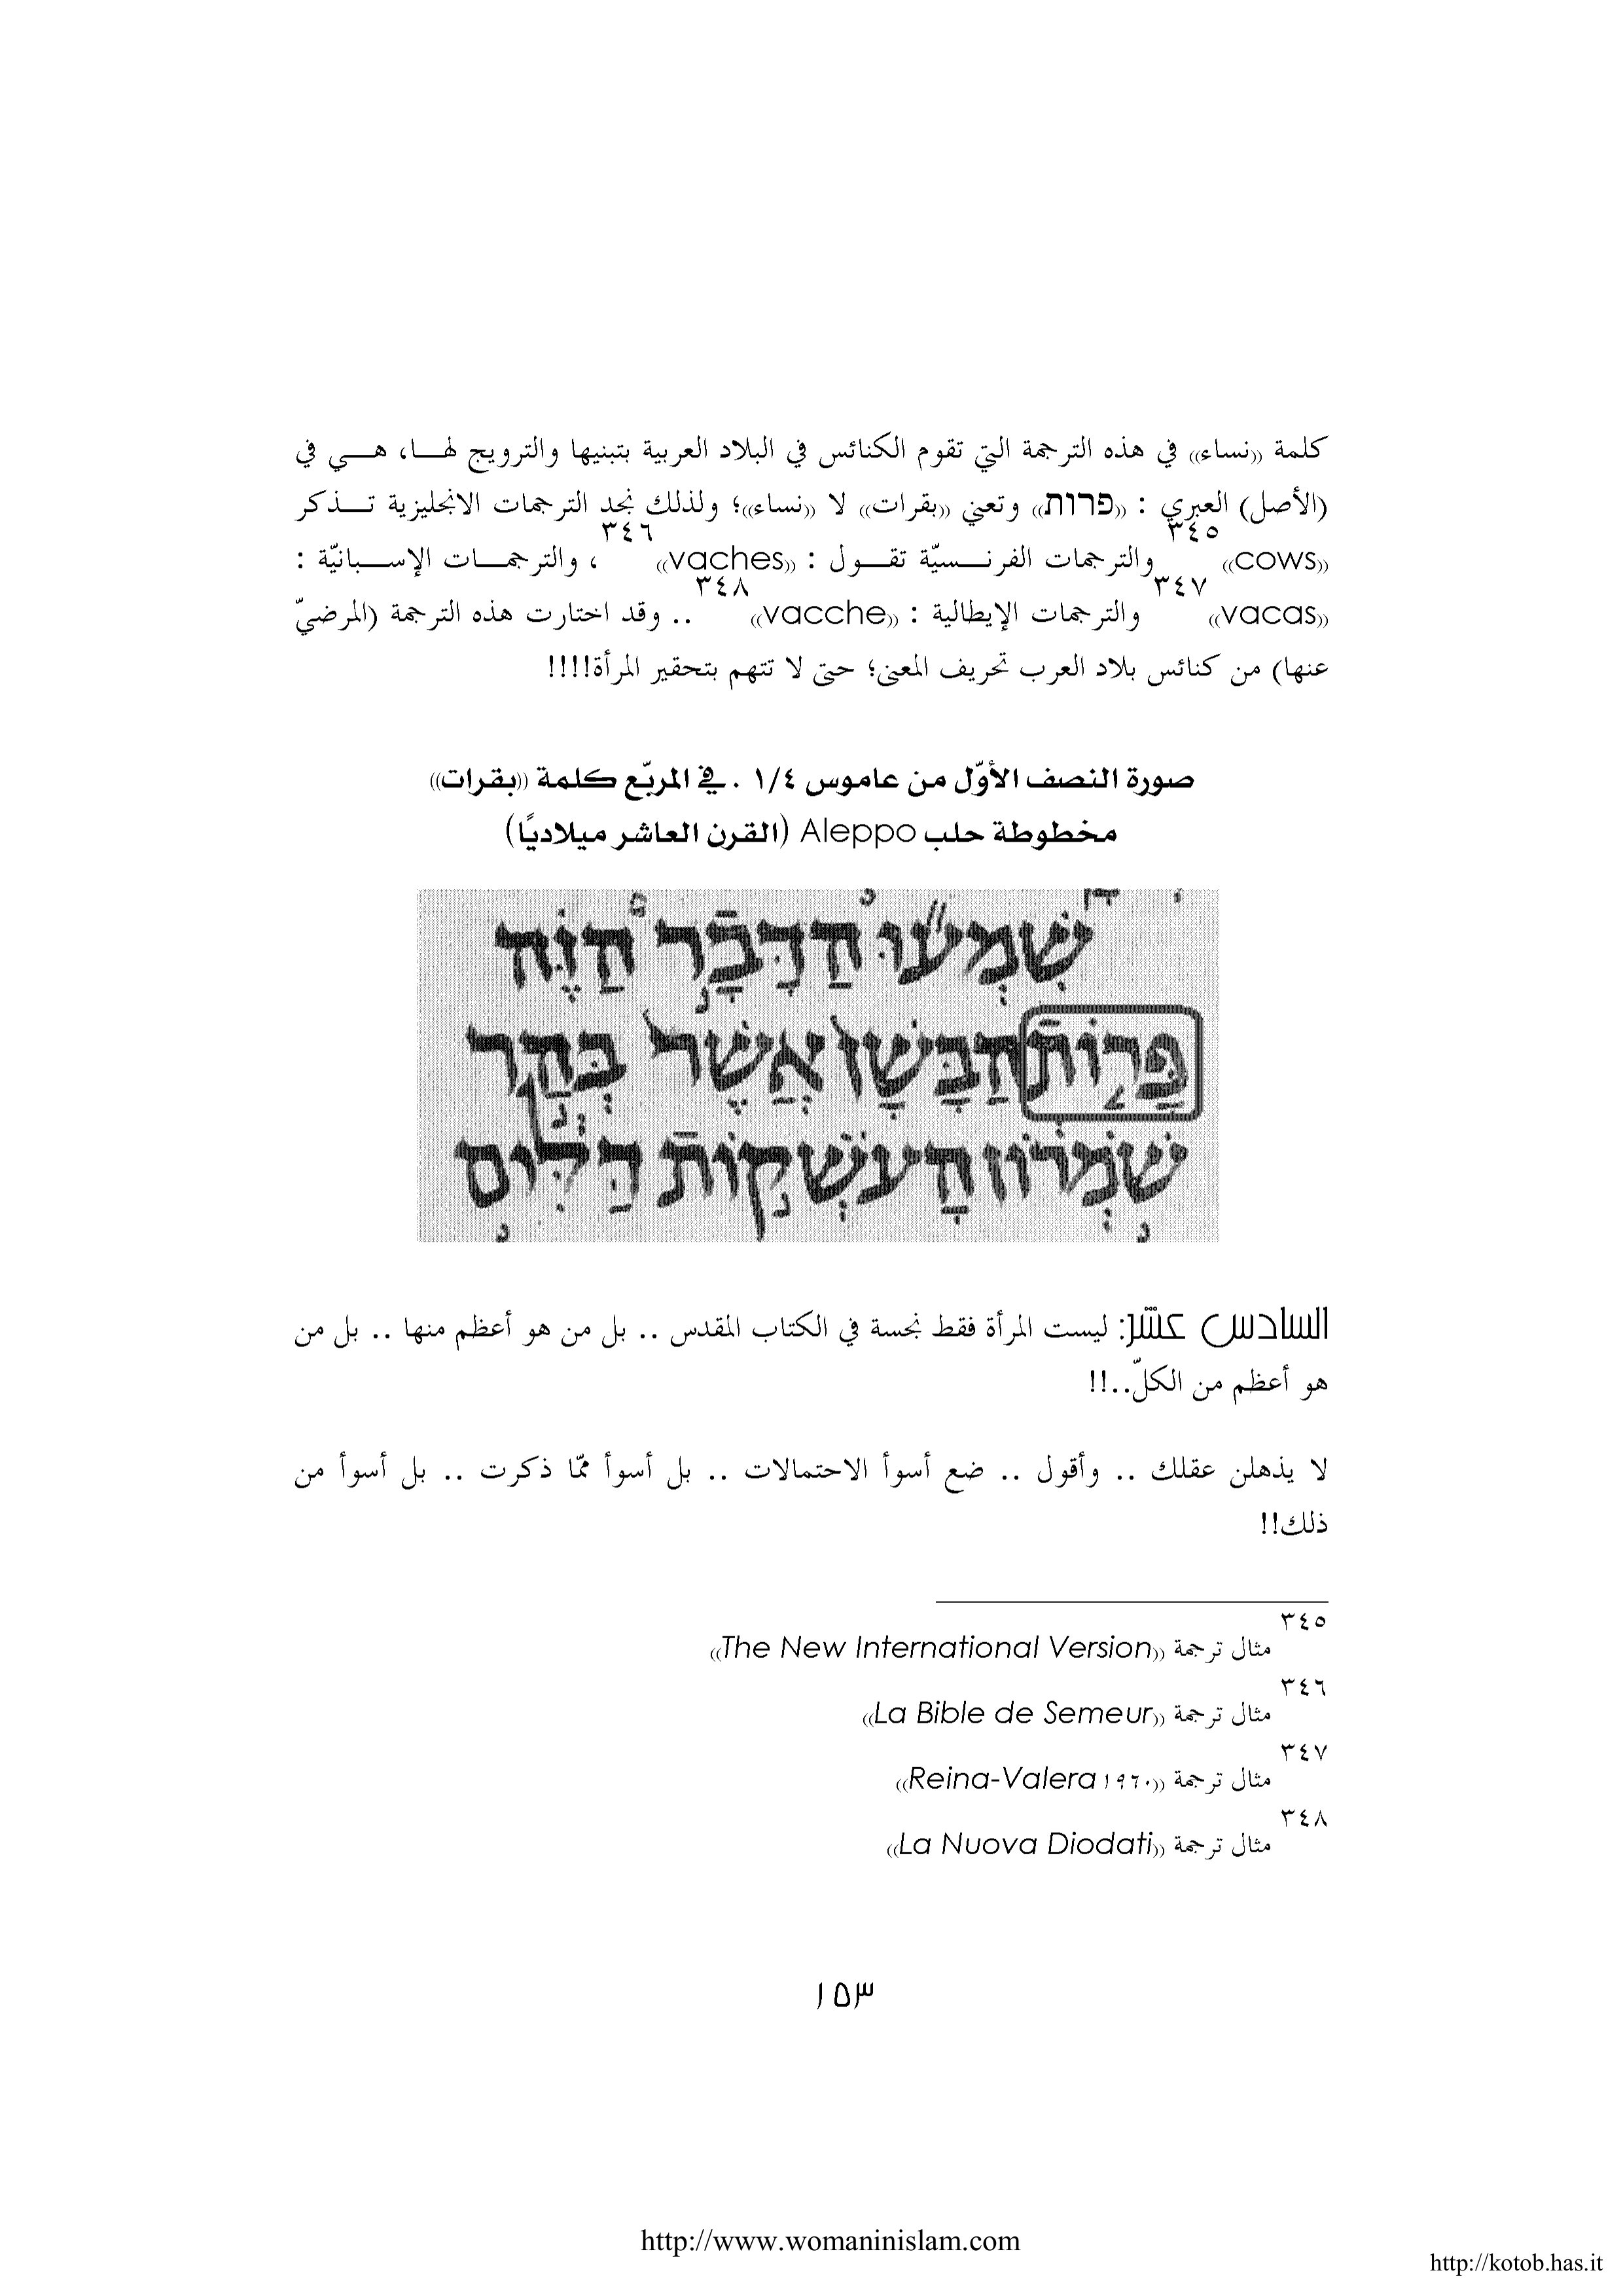 كلمة ((نساء)) في هذه الترجمة التي تقوم الكنائس في البلاد العربية بتبنيها والترويج لهـــا، هـــي في
(الأصل) العبري : ((פרות)) وتعني ((بقرات)) لا ((نساء))؛ ولذلك نجد الترجمات الانجليزية تـــذكر
((cows))٣٤٥ والترجمات الفرنـــسيّة تقـــول : ((vaches))٣٤٦ ، والترجمـــات الإســـبانيّة :
((vacas))٣٤٧ والترجمات الإيطالية : ((vacche))٣٤٨ .. وقد اختارت هذه الترجمة (المرضيّ
عنها) من كنائس بلاد العرب تحريف المعنى؛ حتى لا تتهم بتحقير المرأة!!!!
صورة النصف الأوّل من عاموس ١/٤ . في المربّع كلمة ((بقرات))
مخطوطة حلب Aleppo (القرن العاشر ميلاديًا)
שִׁמְע֞וּ הַדָּבָ֣ר הַזֶּ֗ה
פָּר֤וֹת הַבָּשָׁן֙ אֲשֶׁר֙ בְּהַ֣ר
שֹֽׁמְר֔וֹן הָעֹשְׁק֣וֹת דַּלִּ֔ים
السادس عشر: ليست المرأة فقط نجسة في الكتاب المقدس .. بل من هو أعظم منها .. بل من
هو أعظم من الكلّ..!!
لا يذهلن عقلك .. وأقول .. ضع أسوأ الاحتمالات .. بل أسوأ ممّا ذكرت .. بل أسوأ من
ذلك!!
٣٤٥ مثال ترجمة ((The New International Version))
٣٤٦ مثال ترجمة ((La Bible de Semeur))
٣٤٧ مثال ترجمة ((Reina-Valera ١٩٦٠))
٣٤٨ مثال ترجمة ((La Nuova Diodati))
١٥٣
http://www.womaninislam.com
http://kotob.has.it